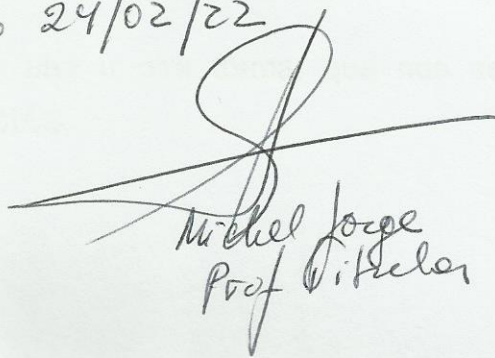 24/02/22
Michel Jorge
Prof Titular